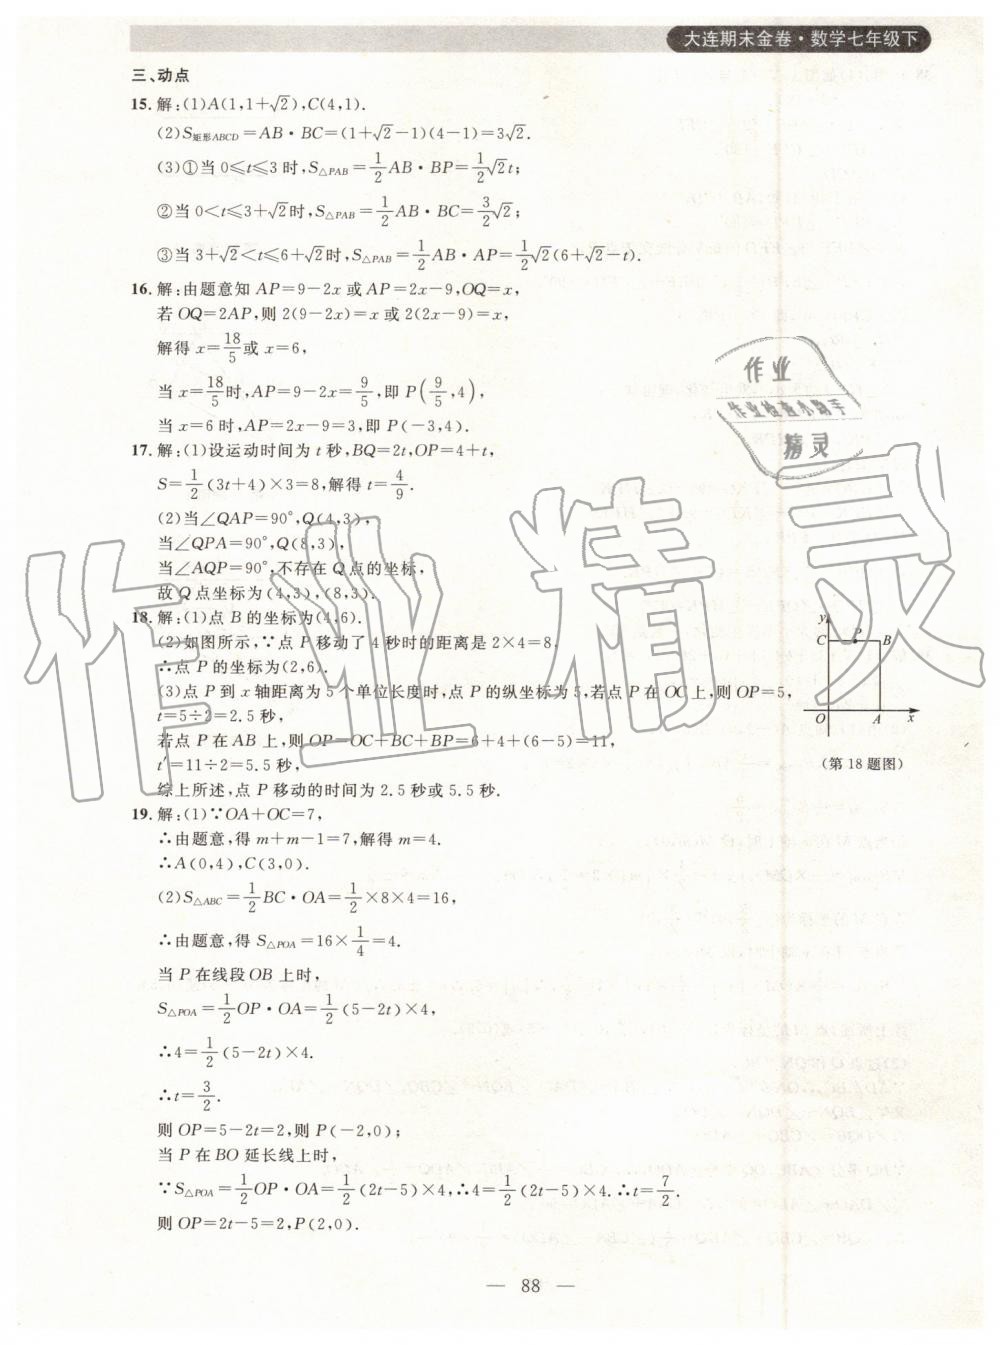 大连期末金卷·数学七年级下
三、动点
15.解:(1)A(1,1+√2),C(4,1).
(2)S矩形ABCD=AB·BC=(1+√2-1)(4-1)=3√2.
(3)①当0≤t≤3时,S△PAB=1/2AB·BP=1/2√2t;
②当0<t≤3+√2时,S△PAB=1/2AB·BC=3/2√2;
③当3+√2<t≤6+√2时,S△PAB=1/2AB·AP=1/2√2(6+√2-t).
16.解:由题意知AP=9-2x或AP=2x-9,OQ=x,
若OQ=2AP,则2(9-2x)=x或2(2x-9)=x,
解得x=18/5或x=6,
当x=18/5时,AP=9-2x=9/5,即P(9/5,4),
当x=6时,AP=2x-9=3,即P(-3,4).
17.解:(1)设运动时间为t秒,BQ=2t,OP=4+t,
S=1/2(3t+4)×3=8,解得t=4/9.
(2)当∠QAP=90°,Q(4,3),
当∠QPA=90°,Q(8,3),
当∠AQP=90°,不存在Q点的坐标,
故Q点坐标为(4,3),(8,3).
18.解:(1)点B的坐标为(4,6).
(2)如图所示,∵点P移动了4秒时的距离是2×4=8,
∴点P的坐标为(2,6).
(3)点P到x轴距离为5个单位长度时,点P的纵坐标为5,若点P在OC上,则OP=5,
t=5÷2=2.5秒,
若点P在AB上,则OP=OC+BC+BP=6+4+(6-5)=11,
t′=11÷2=5.5秒,
综上所述,点P移动的时间为2.5秒或5.5秒.
y
C P B
O A x
(第18题图)
19.解:(1)∵OA+OC=7,
∴由题意,得m+m-1=7,解得m=4.
∴A(0,4),C(3,0).
(2)S△ABC=1/2BC·OA=1/2×8×4=16,
∴由题意,得S△POA=16×1/4=4.
当P在线段OB上时,
S△POA=1/2OP·OA=1/2(5-2t)×4,
∴4=1/2(5-2t)×4.
∴t=3/2.
则OP=5-2t=2,则P(-2,0);
当P在BO延长线上时,
∵S△POA=1/2OP·OA=1/2(2t-5)×4,∴4=1/2(2t-5)×4.∴t=7/2.
则OP=2t-5=2,P(2,0).
— 88 —
作业
作业检查小助手
精灵
作业精灵